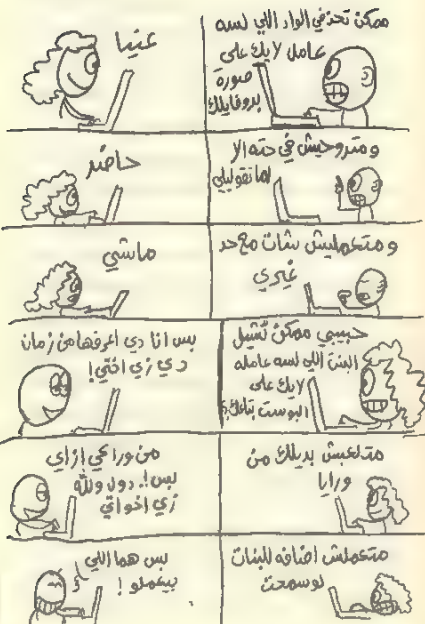 ممكن تحذفي الواد اللي لسه
عامل لايك على
صورة
بروفايلك
عنيا
ومتروحيش في حته إلا
لما تقوليلي
حاضر
ومتعمليش شات مع حد
غيري
ماشي
حبيبي ممكن تشيل
البنت اللي لسه عامله
لايك على
البوست بتاعك؟
بس انا دي اعرفها من زمان
دي زي اختي!
متلعبش بديلك من
ورايا
من وراكي إزاي
بس!. دول والله
زي اخواتي
متعملش اضافه للبنات
لو سمحت
بس هما اللي
بيعملو!